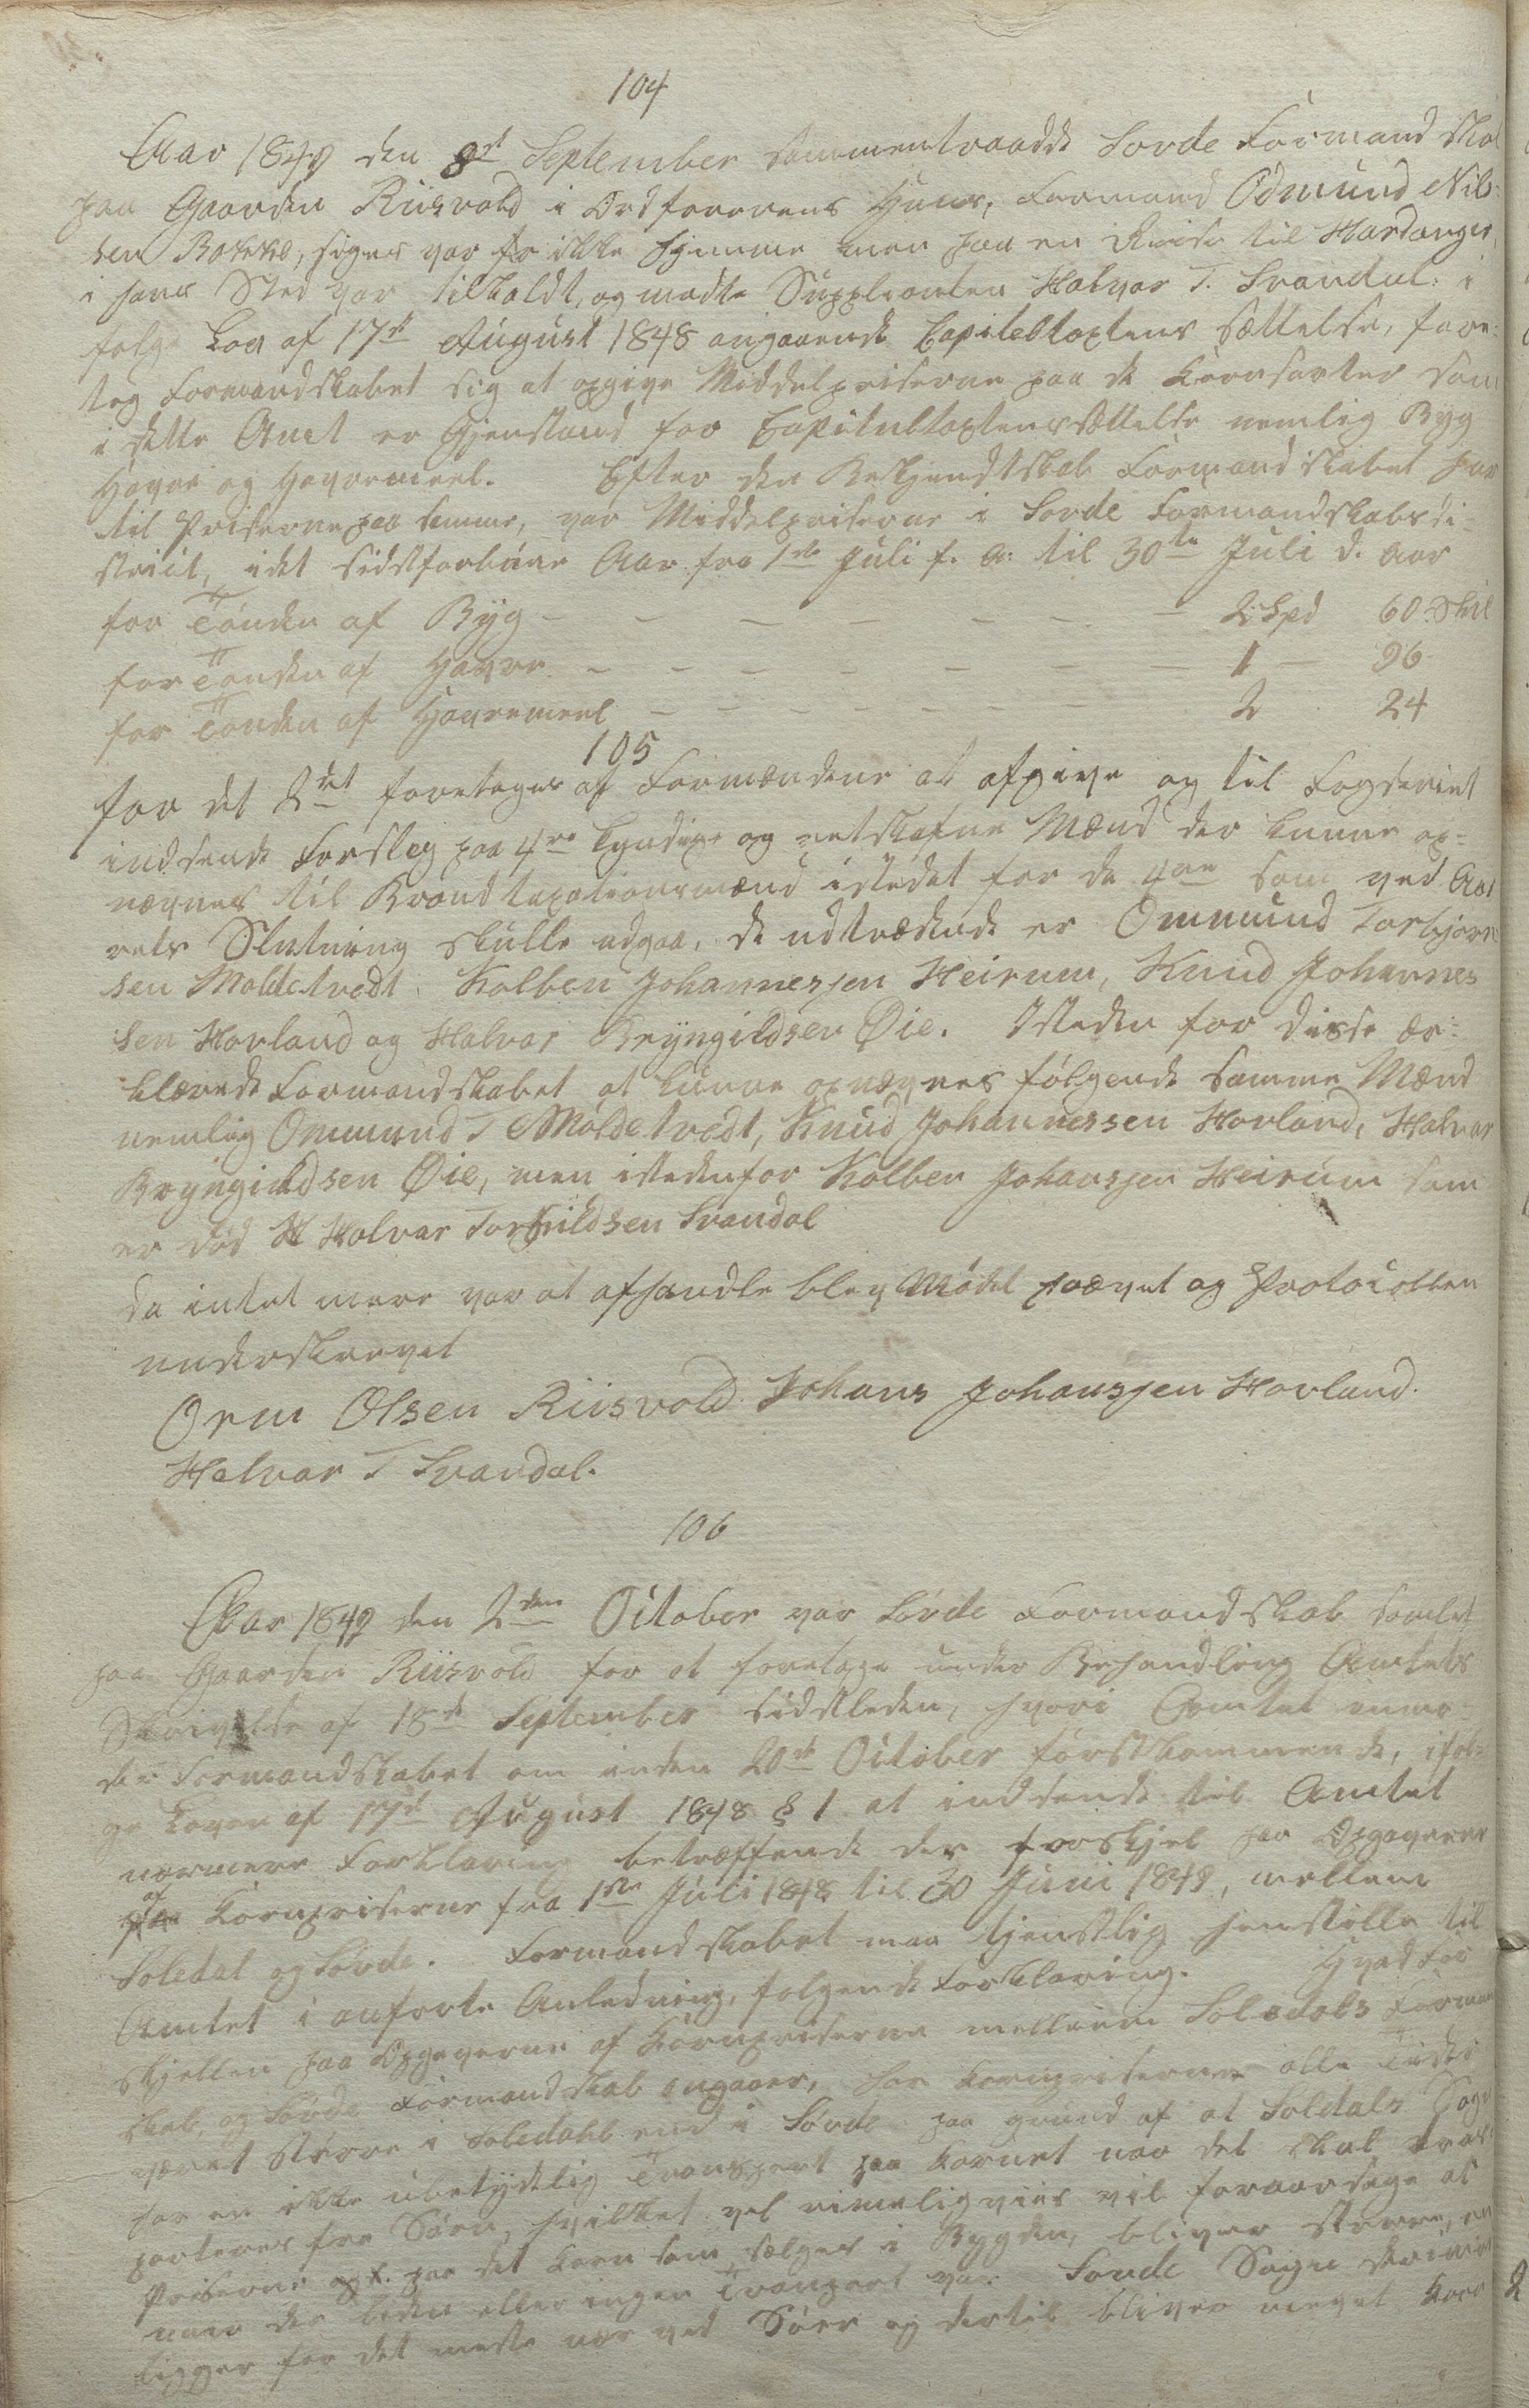 104
Aar 1849 den 8de September sammentraadde Sovde Formandskab
paa Gaarden Riisvold i Ordførerens Huus, Formand Odmund Nils-
sen Bakke, siges var ikke hjemme men paa en Reise til Hardanger,
i hans Sted var tilkaldt, og mødte Suplianten Halvar T. Svandal. i
følge Lov af 17de August 1848 angaaende Capiteltaxtens sættelse, fore-
tog Formandskabet sig at opgive Middelpriserne paa de Kornsorter som
i dette Amt er Gjenstand for Capiteltaxtenssættelse nemlig Byg
Havre og Havremeel. Efter den Bekjendtskab Formandskabet har
til Priserne paa samme, var Middelpriserne i Sovde Formandskabsdi-
strict, i det sidstforløbne Aar fra 1ste Juli f. A. til 30te Juli d. Aar
for Tønden af Byg - - - - - - - 2 Spd 60 Skil
for Tønden af Havre - - - - - - 1 - 96
for Tønden af Havremeel - - - - - - - 2 24
105
for det 2det foretoges af Formændene at afgive og til Fogderiet
indsende Forslag paa 4re kyndige og retskafne Mænd der kunne op-
nævnes til Brandtaxationsmænd istedet for de 4re som ved Aa-
rets Slutning skulle udgaa, de udtrædende er Ommund Torbjørn-
sen Moldetvedt Kolben Johannesjen Heirum, Knud Johannes
sen Hovland og Halvar Bryngildsen Øie. Isteden for disse er-
klærede Formandskabet at kunne opnævnes følgende samme Mænd
nemlig Ommund T Moldetvedt, Knud Johannessen Hovland, Halvar
Bryngildsen Øie, men istedenfor Kolben Johansjen Heirum som
er død Halvar Torkildsen Svandal
da intet mere var at afhandle blev Mødet hævet og Protocollen
underskrevet
Orm Olsen Riisvold Johans Johansjen Hovland.
Halvar T Svandal.
106
Aar 1849 den 2den October var Sovde Formandskab samlet
paa Gaarden Riisvold for at foretage under Behandling Amtets
Skrivelse af 18de September sidstleden, hvori Amtet anmo-
der Formandskabet om inden 20de October førstkommende, ifølge-
ge Loven af 17de August 1848 § 1 at indsende til Amtet
nærmere Forklaring betræffende den forskjel paa Opgaverne
af Kornpriserne fra 1ste Juli 1848 til 30 Juni 1849, mellem
Soledal og Sovde. Formandskabet maa tjenstlig henstille til
Amtet i anførte Anledning, følgende Forklaring. Hvad For
skjellen paa Opgaverne af Kornpriserne mellem Soledals Forman
skab, og Sovde Formandskab angaaer, har Kornpriserne alle Tider
været større i Soledahl end i Sovde paa grund af at Soldals Sogn
har en ikke ubetydelig Transport paa Kornet naar det skal trans
porteres fra Søen, hvilket vel rimeligviis vil foraarsage at
Priserne paa det Korn som sælges i Bygden, bliver større, en
naar der liden eller ingen Transport var. Sovde Sogn derimod
ligger for det meste nær ved Søen og dertil bliver meget Korn